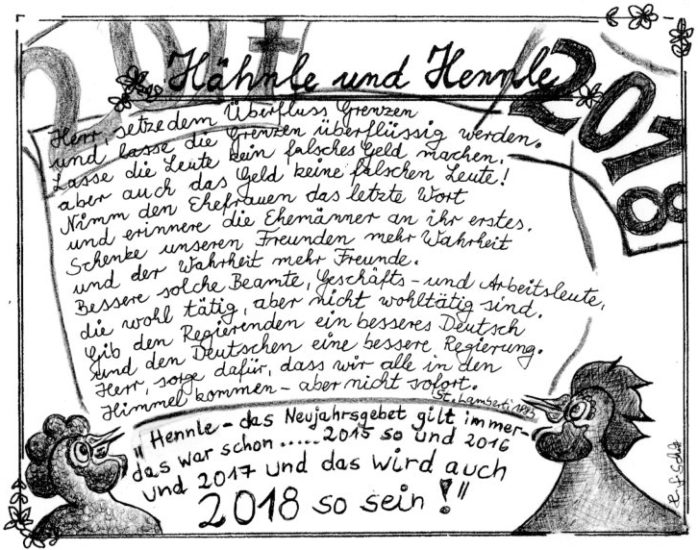 2017
Hähnle und Hennle
2018
Herr, setze dem Überfluss Grenzen
und lasse die Grenzen überflüssig werden.
Lasse die Leute kein falsches Geld machen,
aber auch das Geld keine falschen Leute!
Nimm den Ehefrauen das letzte Wort
und erinnere die Ehemänner an ihr erstes.
Schenke unseren Freunden mehr Wahrheit
und der Wahrheit mehr Freunde.
Bessere solche Beamte, Geschäfts- und Arbeitsleute,
die wohl tätig, aber nicht wohltätig sind.
Gib den Regierenden ein besseres Deutsch
und den Deutschen eine bessere Regierung.
Herr, sorge dafür, dass wir alle in den
Himmel kommen - aber nicht sofort.
St. Lamberti
"Hennle - das Neujahrsgebet gilt immer-
das war schon ..... 2015 so und 2016
und 2017 und das wird auch
2018 so sein!"